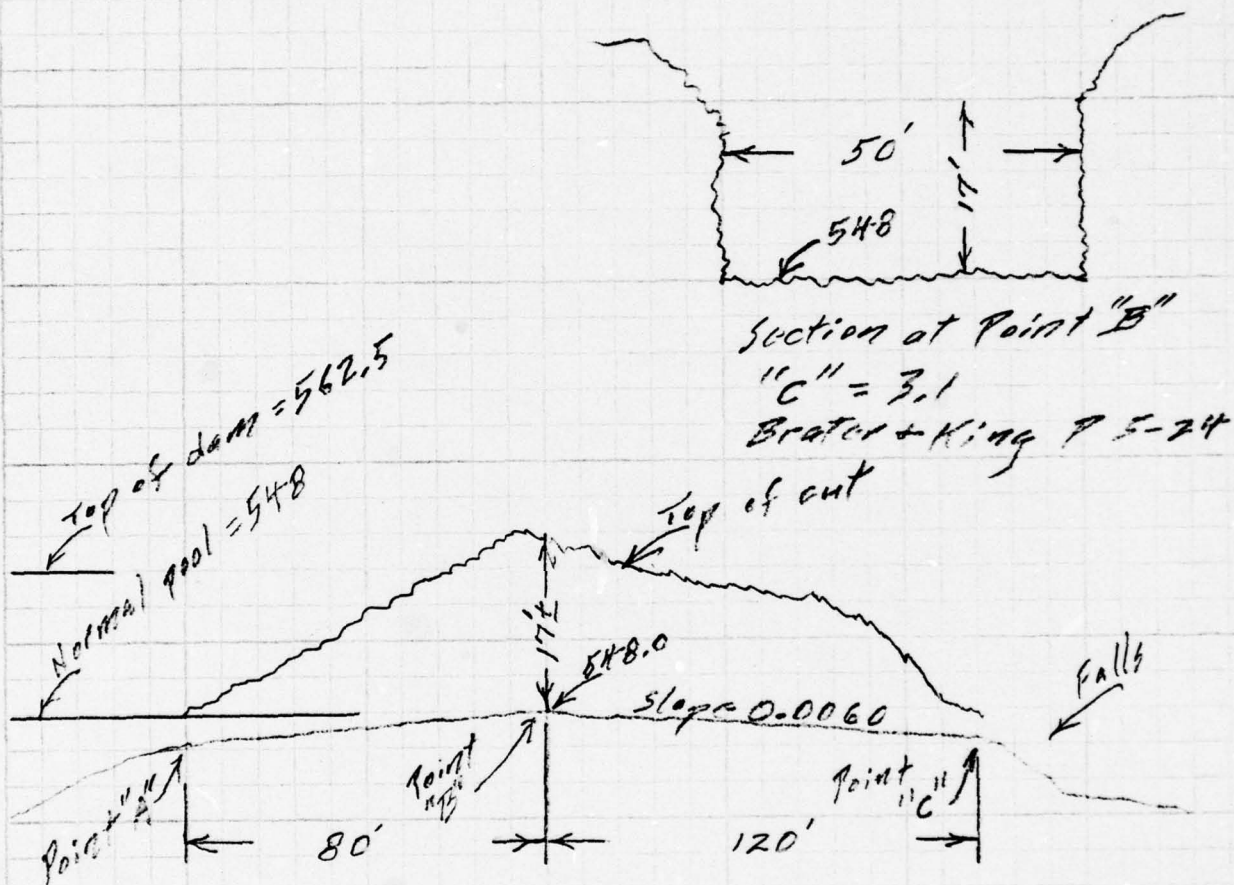 50'
17'
548
Section at Point "B"
"C" = 3.1
Brater + King P 5-24
Top of dam = 562.5
Normal pool = 548
Top of cut
17'±
548.0
slope 0.0060
Falls
Point "A"
Point "B"
Point "C"
80'
120'